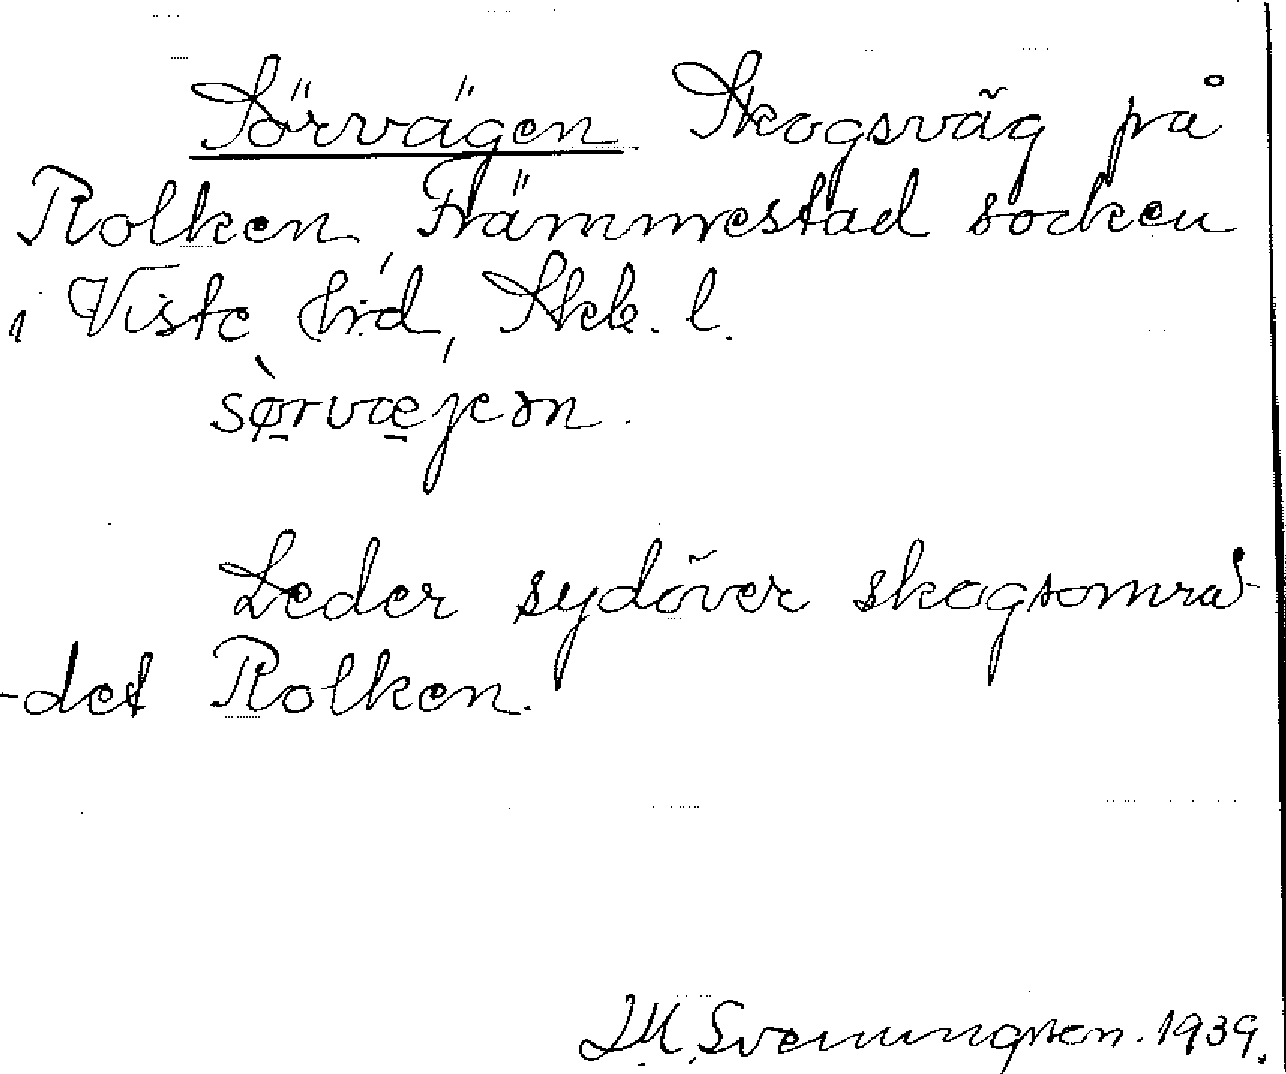 Sörvägen. Skogsväg på
Rolken, Främmestad socken
i Viste hrd, Skb. l.
sø̱̀rvǽ̱jen.
Leder sydöver skogsområ-
-det Rolken.
Svenungsson. 1939.